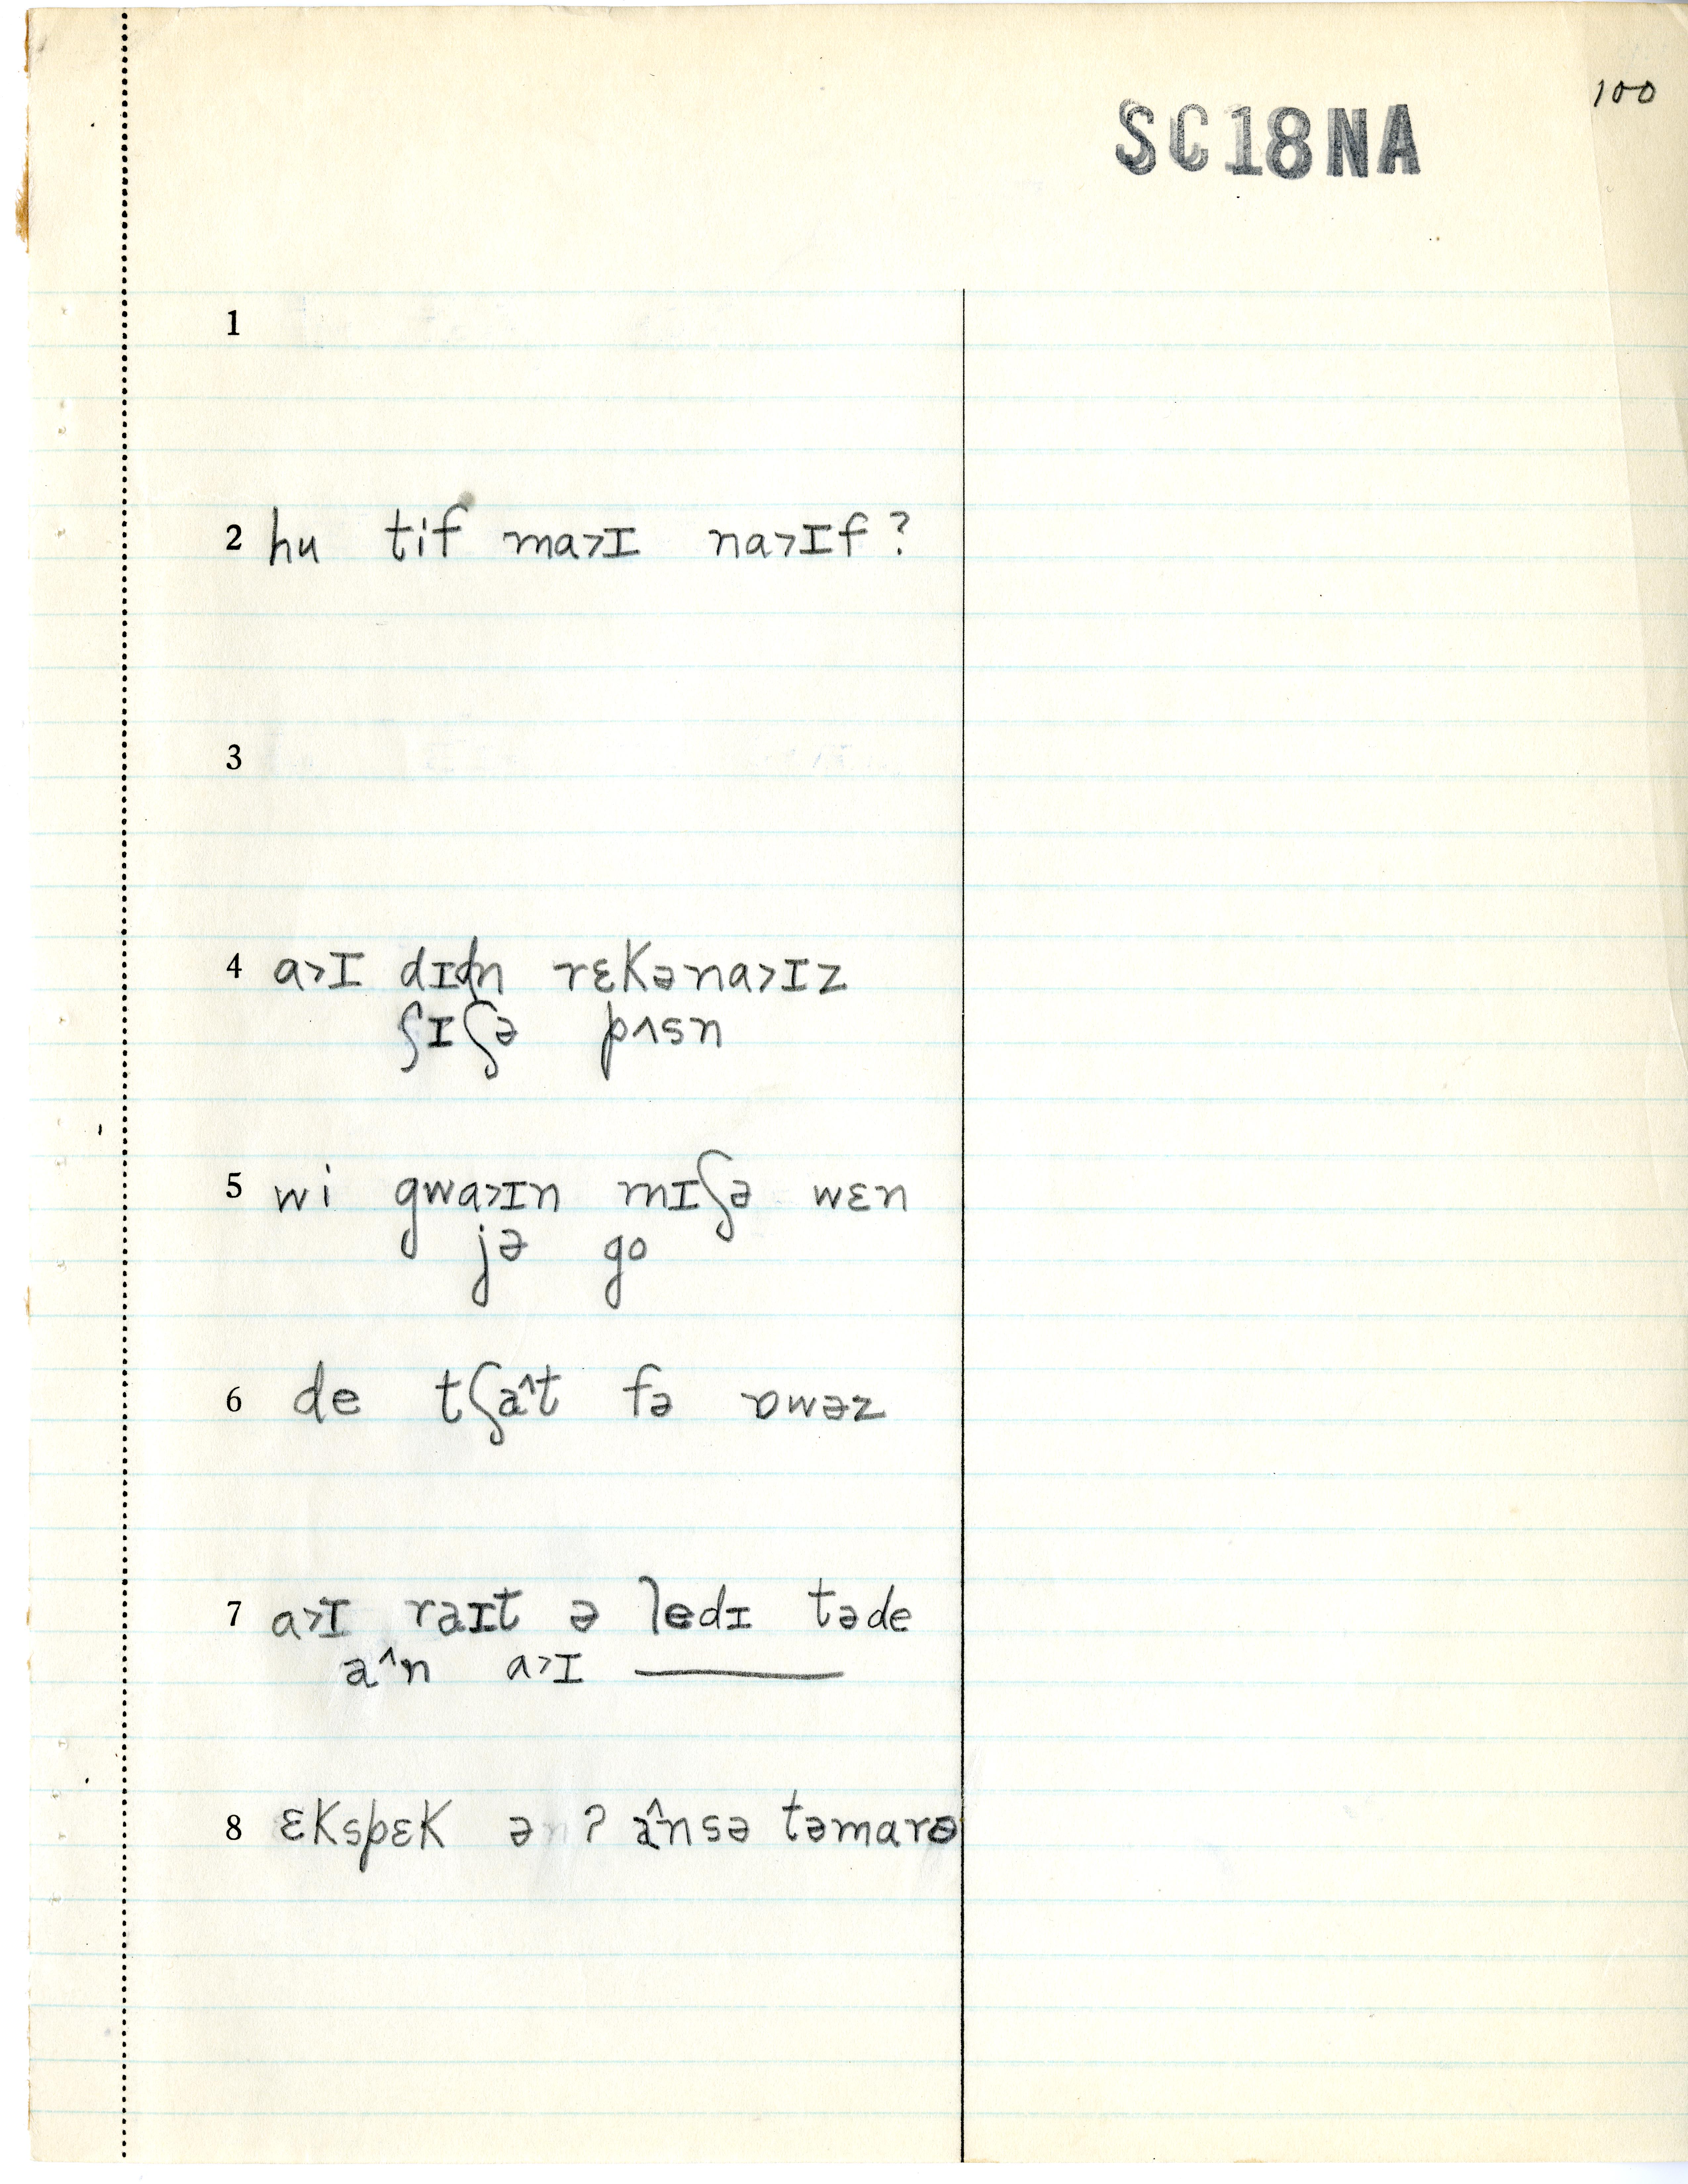 100
SC18NA
1
2 hu tif ma>ɪ na>ɪf ?
3
4 a>ɪ dɪdn rɛkəna>ɪz
ʃɪʃə pʌsn
5 wi gwa>ɪn mɪʃə wɛn
jə go
6 de tʃa^t fə ɒwəz
7 a>ɪ raɪt ə ledɪ təde
a^n a>ɪ ———
8 ɛkspɛk ə ʔ a^nsə təmarə